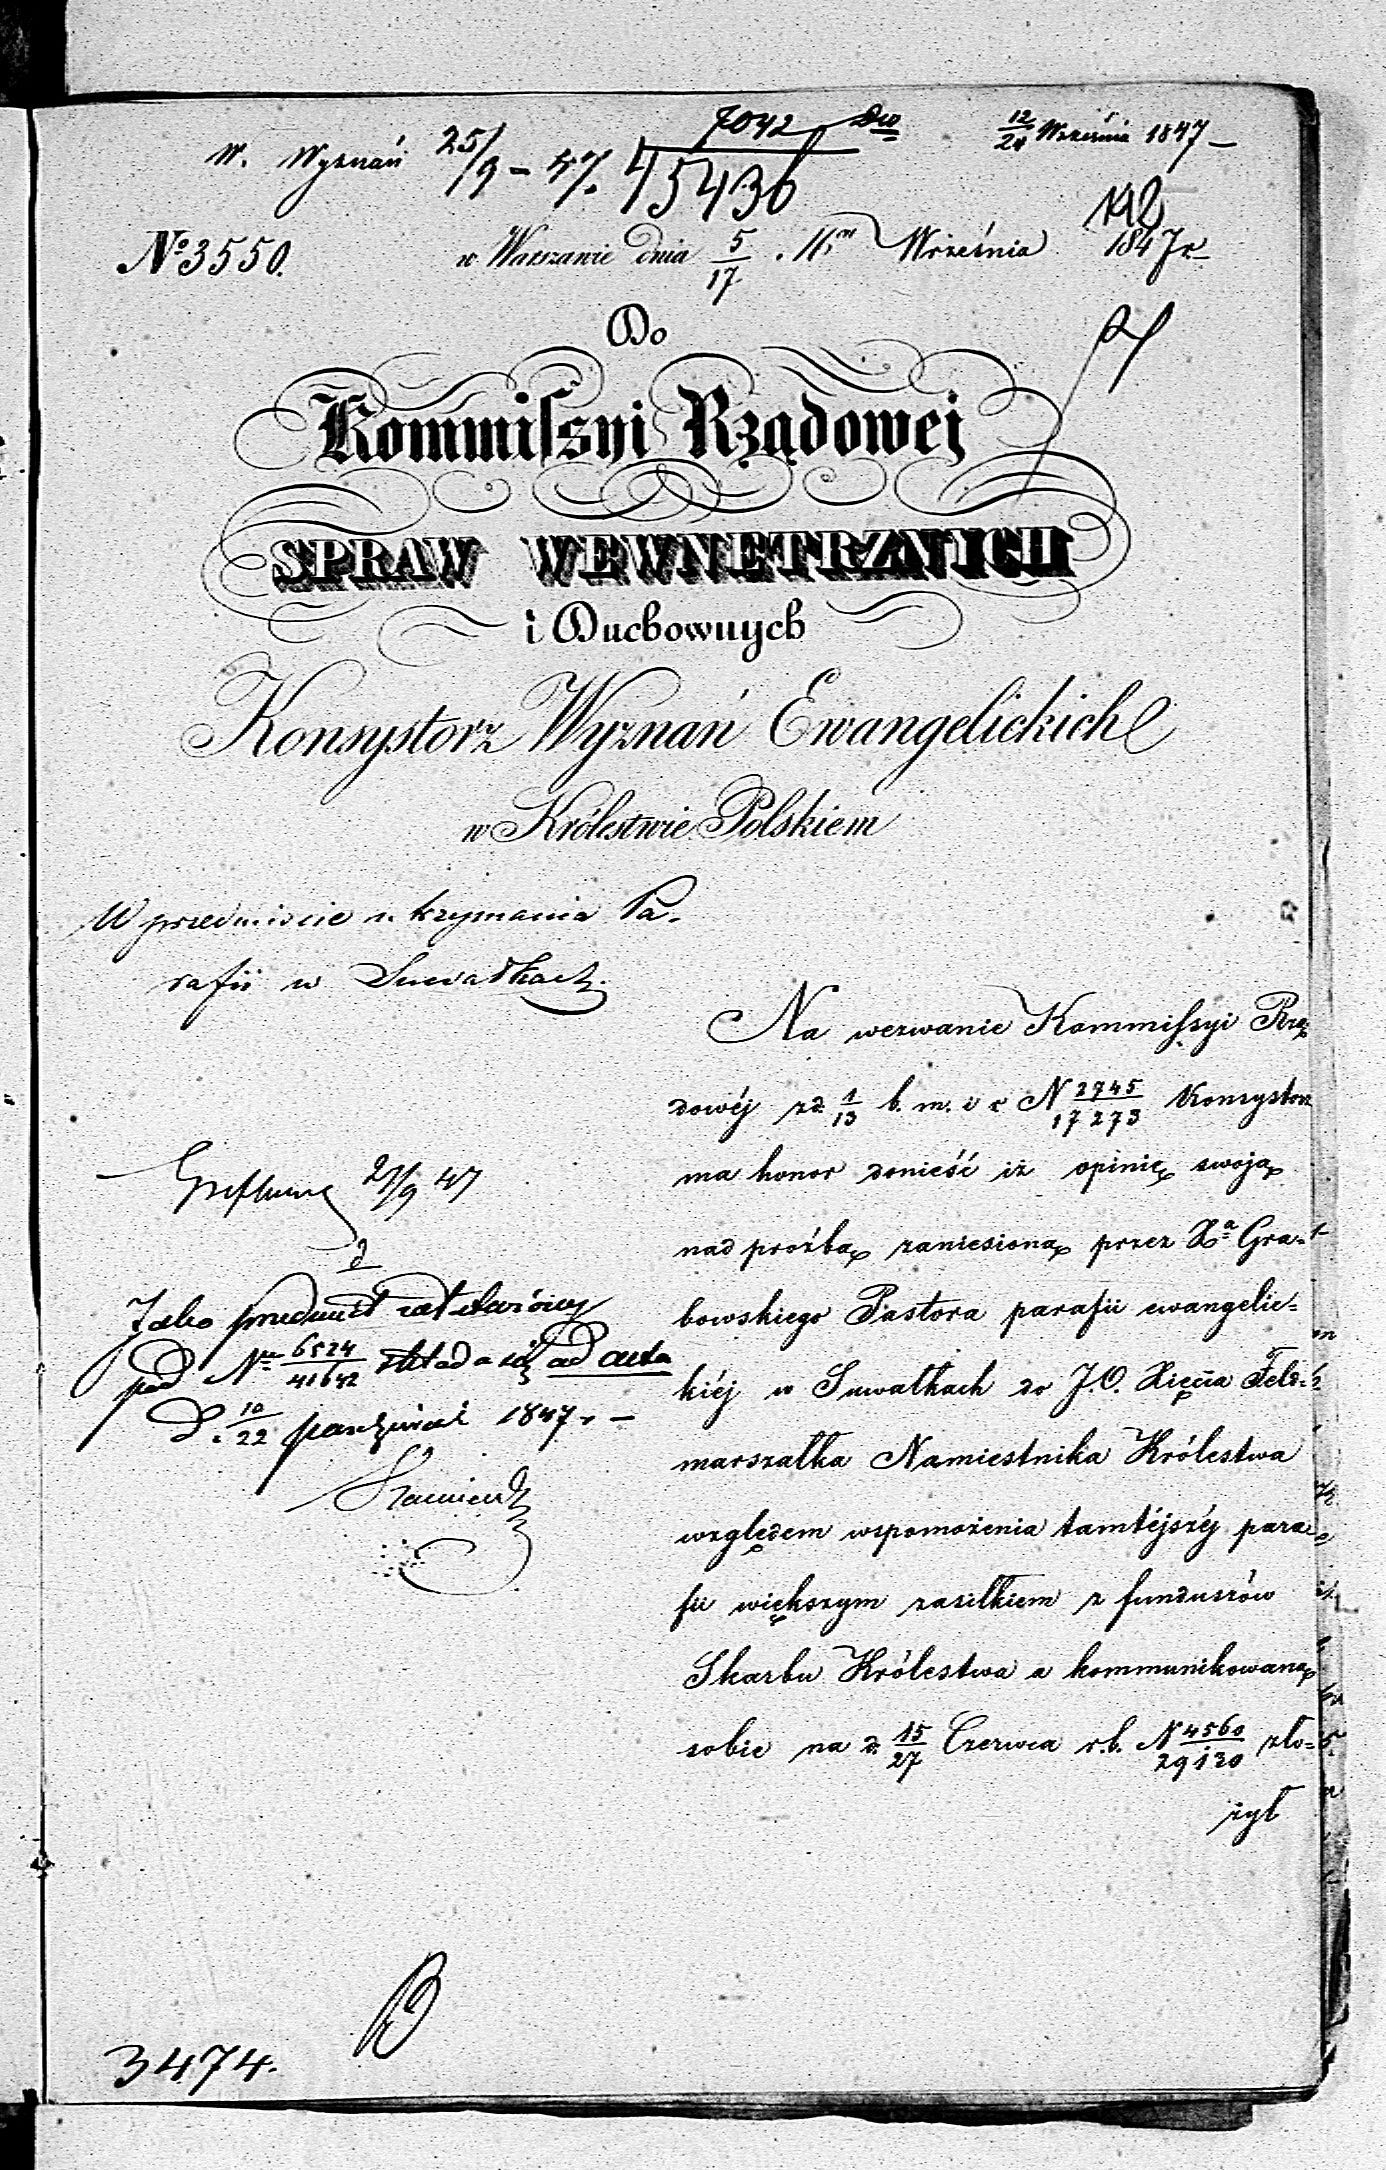 W. Wyznań 25/9 - 47.
7042
45436
12/24 Września 1847
192
No 3550.
w Warszawie dnia 5/17 . Mca Września 1847 r
Do
Kommiſsyi Rządowej
SPRAW WEWNĘTRZNYCH
i Duchownych
Konsystorz Wyznań Ewangelickich
w Królestwie Polskiem
W przedmiocie utrzymania Pa-
rafii w Suwałkach.
Na wezwanie Kommiſsyi Rzą
dowéj z d. 1/13 b. m. i r N 2745/17273 Konsystorz
ma honor donieść iż opinię swoją
nad prośbą zaniesioną przez Xa Gra-
bowskiego Pastora parafii ewangelic-
kiéj w Suwałkach do J.O. Xięcia Feld-
marszałka Namiestnika Królestwa
względem wspomożenia tamtéjszéj para
fii większym zasiłkiem z funduszów
Skarbu Królestwa a kommunikowaną
sobie na d. 15/27 Czerwca r.b. N 4560/29130 zło-
żył
27/9 47
Jako przedmiot załatwiony
pod No 6524/41642 składa się ad acta
D. 10/22 październ 1847 r -
3474.